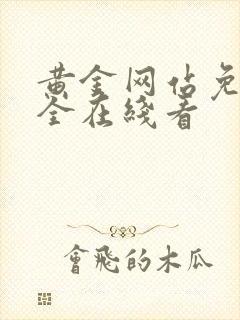 黄金网佔免
全在綫看
會飛的木瓜